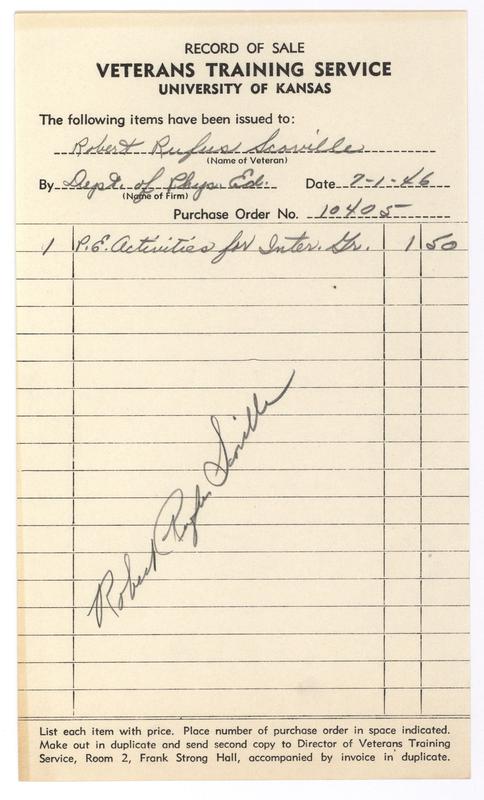 RECORD OF SALE
VETERANS TRAINING SERVICE
UNIVERSITY OF KANSAS
The following items have been issued to:
Robert Rufus Scoville
(Name of Veteran)
By Dept. of Phys. Ed. Date 7-1-46
(Name of Firm)
Purchase Order No. 10405
1 P.E. Activities for Inter. Gr. 1 50
Robert Rufus Scoville
List each item with price. Place number of purchase order in space indicated.
Make out in duplicate and send second copy to Director of Veterans Training
Service, Room 2, Frank Strong Hall, accompanied by invoice in duplicate.